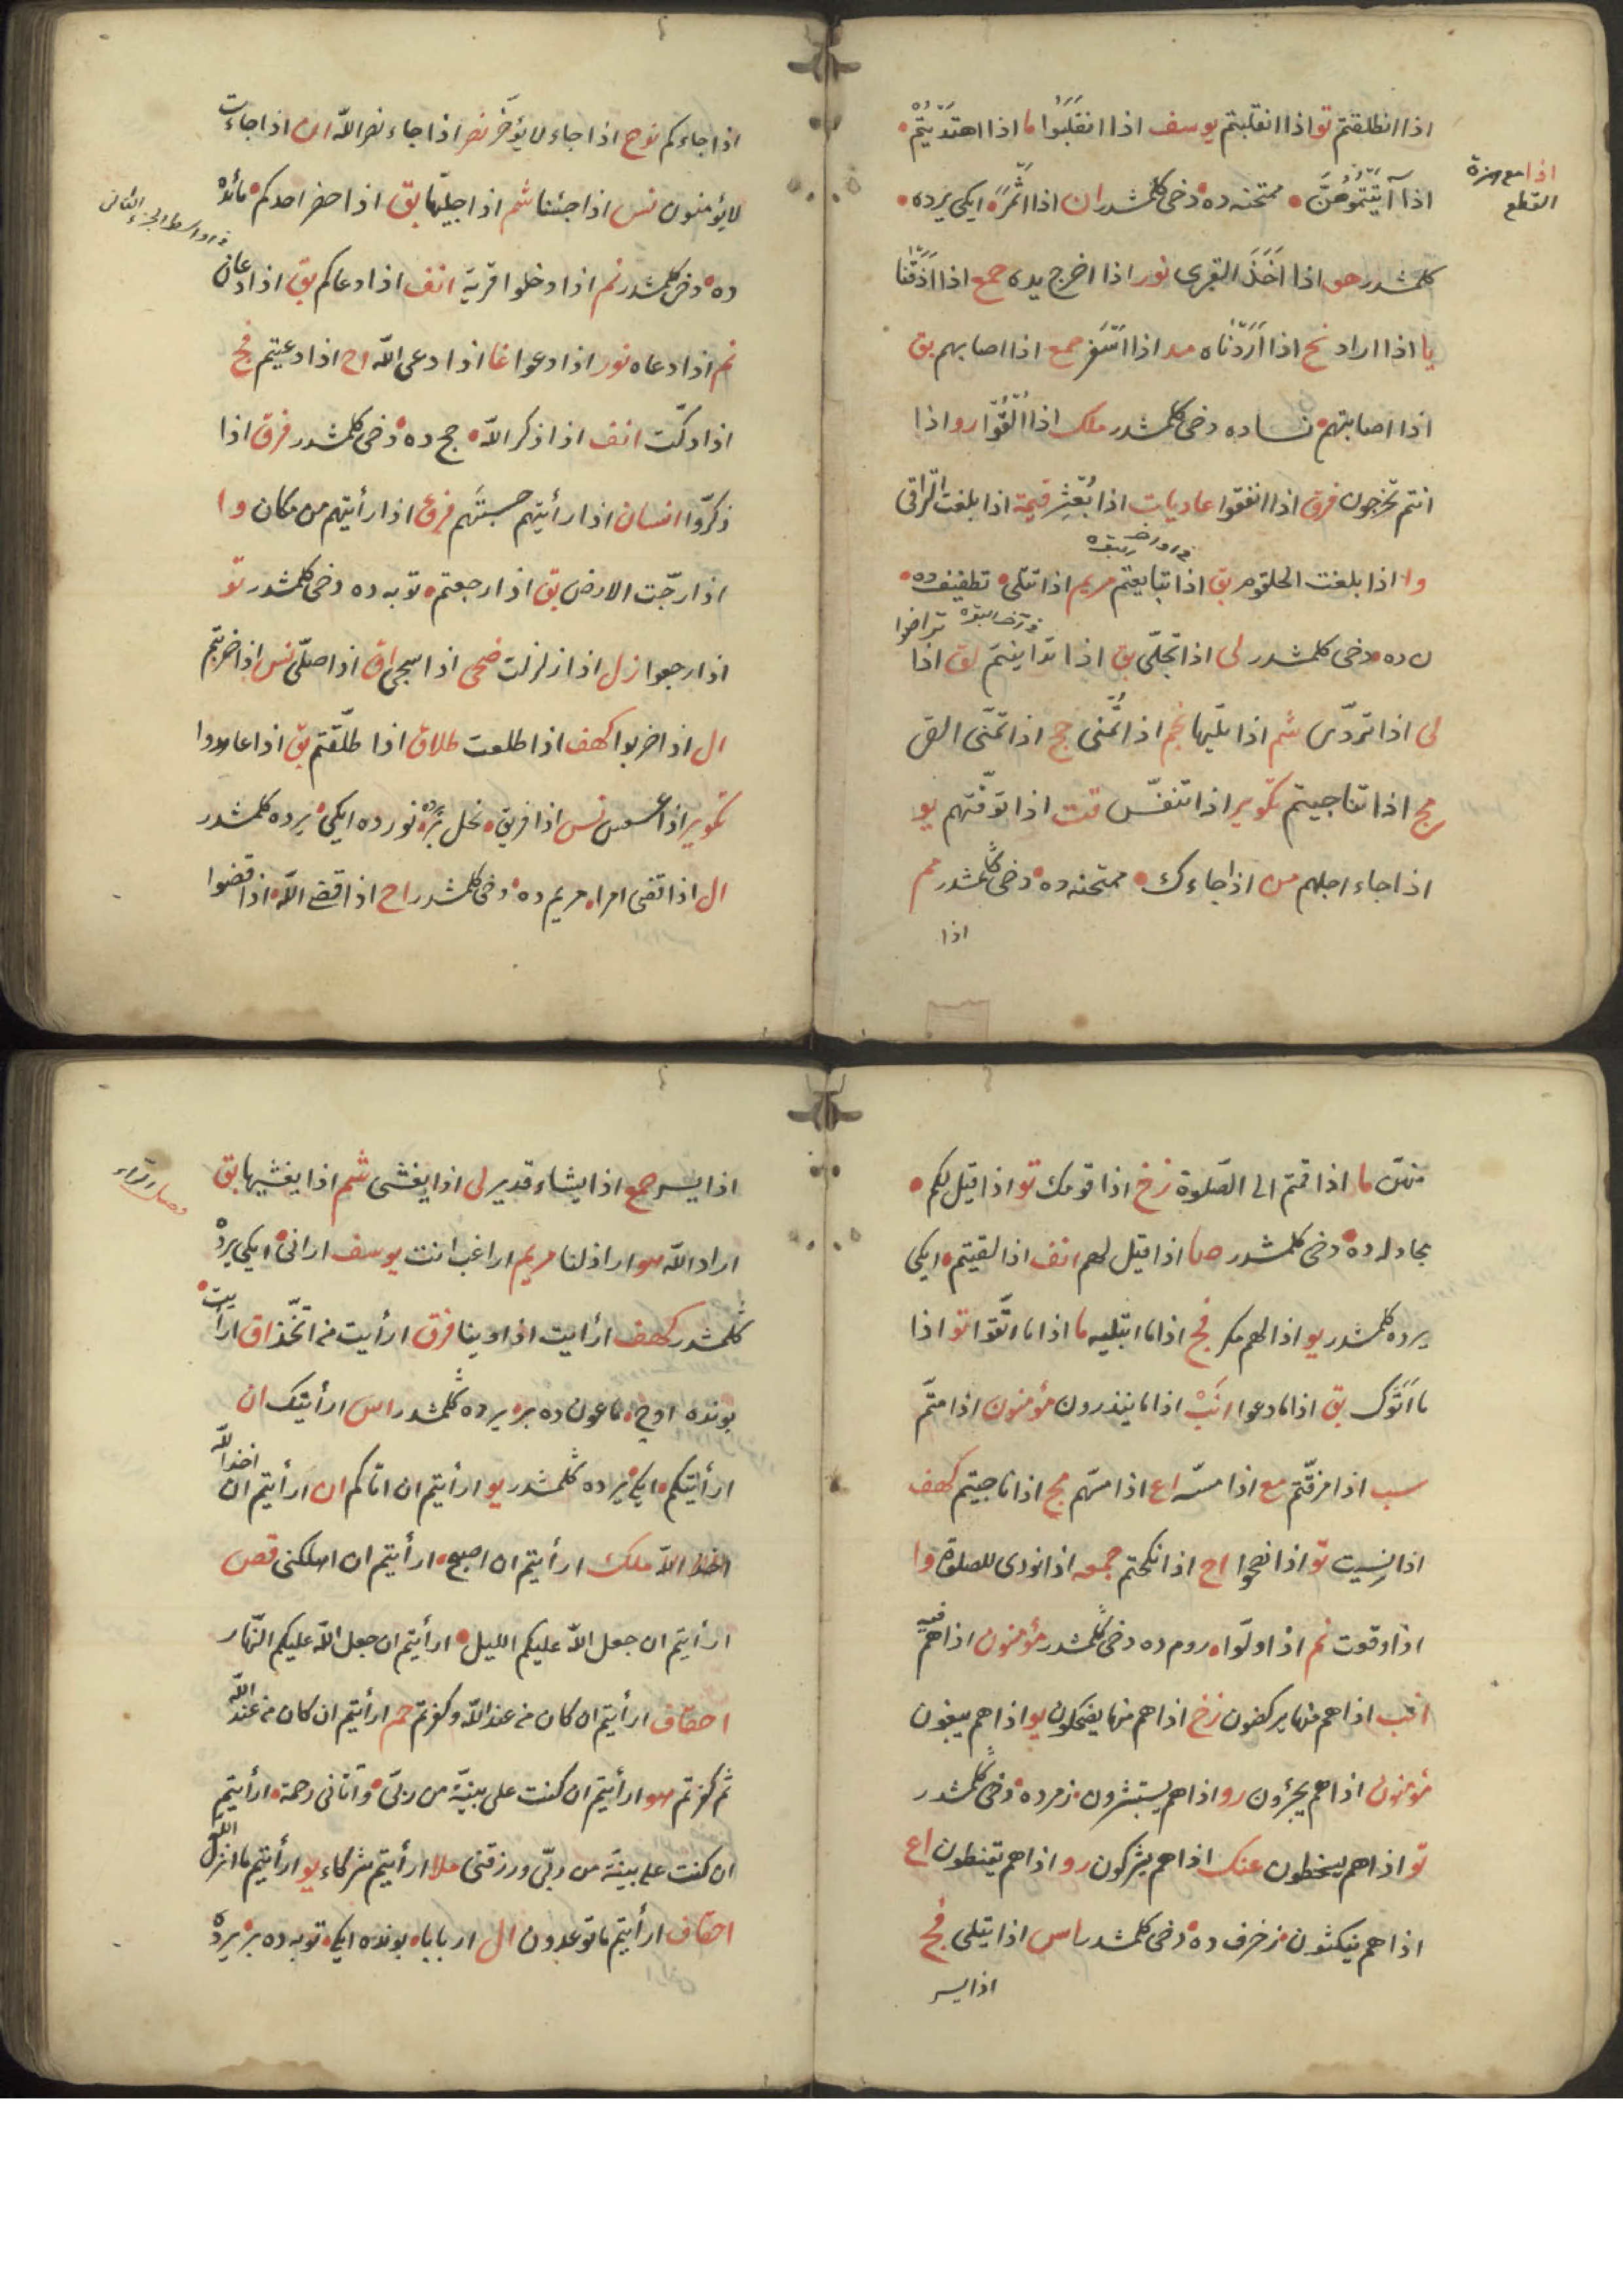 اذا انطلقتم تو اذا انقلبتم يوسف اذا انقلبوا ما اذا اهتديتم
اذا مع همزة
القطع
اذا آتيتموهن ممتحنه ده دخى كلمشدر ان اذا اثمر ايكى يرده
كلمشدر هو اذا اخذ القرى نور اذا اخرج يده جمع اذا اذقنا
يا اذا اراد نح اذا اردناه مد اذا اسفر جمع اذا اصابهم بق
اذا اصابتهم نساده دخى كلمشدر ملك اذا القوا رو اذا
انتم تخرجون فرق اذا انفقوا عاديات اذا بعثر قيمة اذا بلغت التراقى
وا اذا بلغت الحلقوم بق اذا تبايعتم مريم اذا تتلى تطفيف ده
ن ده دخى كلمشدر لى اذا تجلى بق اذا تداينتم لق اذا
تراضوا
لى اذا تردى شم اذا تليها نجم اذا تمنى حج اذا تمنى القى
مج اذا تناجيتم تكوير اذا تنفس قت اذا توفتهم يو
اذا جاء اجلهم من اذا جاءك ممتحنه ده دخى كلمشدر مم
اذا
اذا جاءكم نوح اذا جاء لا يؤخر نصر اذا جاء نصر الله ان اذا جاءت
لا يؤمنون نس اذا جئنا شم اذا جليها بق اذا حضر احدكم مائده
ده دخى كلمشدر نم اذا دخلوا قرية انف اذا دعاكم بق اذا دعان
نم اذا دعاه نور اذا دعوا غا اذا دعى الله اح اذا دعيتم فج
اذا دكت انف اذا ذكر الله حج ده دخى كلمشدر فرق اذا
ذكروا انسان اذا رأيتهم حسبتهم فرق اذا رأيتهم من مكان وا
اذا رجت الارض بق اذا رجعتم توبه ده دخى كلمشدر تو
اذا رجعوا زل اذا زلزلت ضحى اذا سجى اق اذا صلى نس اذا ضربتم
ال اذا ضربوا كهف اذا طلعت طلاق اذا طلقتم بق اذا عاهدوا
تكوير اذا عسعس نس اذا فريق نحل بره نور ده ايكى يرده كلمشدر
ال اذا قضى امرا مريم ده دخى كلمشدر اح اذا قضى الله اذا قضوا
منهن ما اذا قمتم الى الصلوة زخ اذا قومك تو اذا قيل لكم
مجادله ده دخى كلمشدر صا اذا قيل لهم انف اذا لقيتم ايكى
يرده كلمشدر يو اذا لهم مكر فج اذا ما ابتليه ما اذا ما اتقوا تو اذا
ما اتوك بق اذا ما دعوا انب اذا ما ينذرون مؤمنون اذا متم
سب اذا مزقتم مع اذا مسه اع اذا مسهم مج اذا ناجيتم كهف
اذا نسيت تو اذا نصحوا اح اذا نكحتم جمعه اذا نودى للصلوة وا
اذا وقعت نم اذا ولوا روم ده دخى كلمشدر مؤمنون اذا هم فيه
انب اذا هم منها يركضون زخ اذا هم منها يضحكون يو اذا هم يبغون
مؤمنون اذا هم يجئرون رو اذا هم يستبشرون زمر ده دخى كلمشدر
تو اذا هم يسخطون عنك اذا هم يشركون رو اذا هم يقنطون اع
اذا هم ينكثون زخرف ده دخى كلمشدر اس اذا يتلى فج
اذا يسر
اذا يسر جمع اذا يشاء قدير لى اذا يغشى شم اذا يغشيها بق
اراد الله هو اراذلنا مريم اراغب انت يوسف ارانى ايكى يرده
كلمشدر كهف ارأيت اذ اوينا فرق ارأيت من اتخذ اق ارأيت
بونده اوچ ماعون ده بر يرده كلمشدر اس ارأيتك ان
ارأيتكم ايكى يرده كلمشدر يو ارأيتم ان اتاكم ان ارأيتم ان اخذ الله
ملك ارأيتم ان اصبح ارأيتم ان اهلكنى قص
ارأيتم ان جعل الله عليكم الليل ارأيتم ان جعل الله عليكم النهار
احقاف ارأيتم ان كان من عند الله وكفرتم حم ارأيتم ان كان من عند الله
ثم كفرتم هو ارأيتم ان كنت على بينة من ربى وآتانى رحمة ارأيتم
ان كنت على بينة من ربى ورزقنى ملا ارأيتم شركاء يو ارأيتم ما انزل الله
احقاف ارأيتم ما تدعون ال اربابا بونده ايكى توبه ده بر يرده